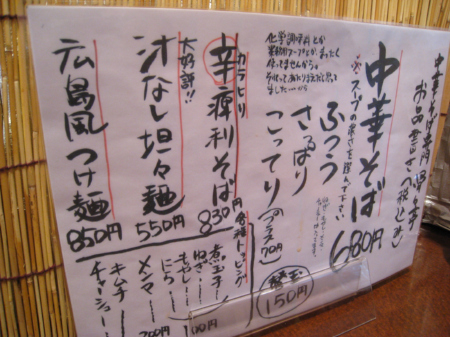 中華そば専門
お品書き(税込み)
中華そば 680円
※スープの濃さを選んで下さい。
ふつう
さっぱり
こってり(プラス70円)
替玉
150円
化学調味料とか
業務用スープとか、まったく
使ってませんから。
カラビリ
辛痺利そば 830円
大好評!!
汁なし坦々麺 550円
広島風つけ麺 850円
各種トッピング
煮玉子
ねぎ
もやし
にら
100円
メンマ
キムチ
200円
チャーシュー